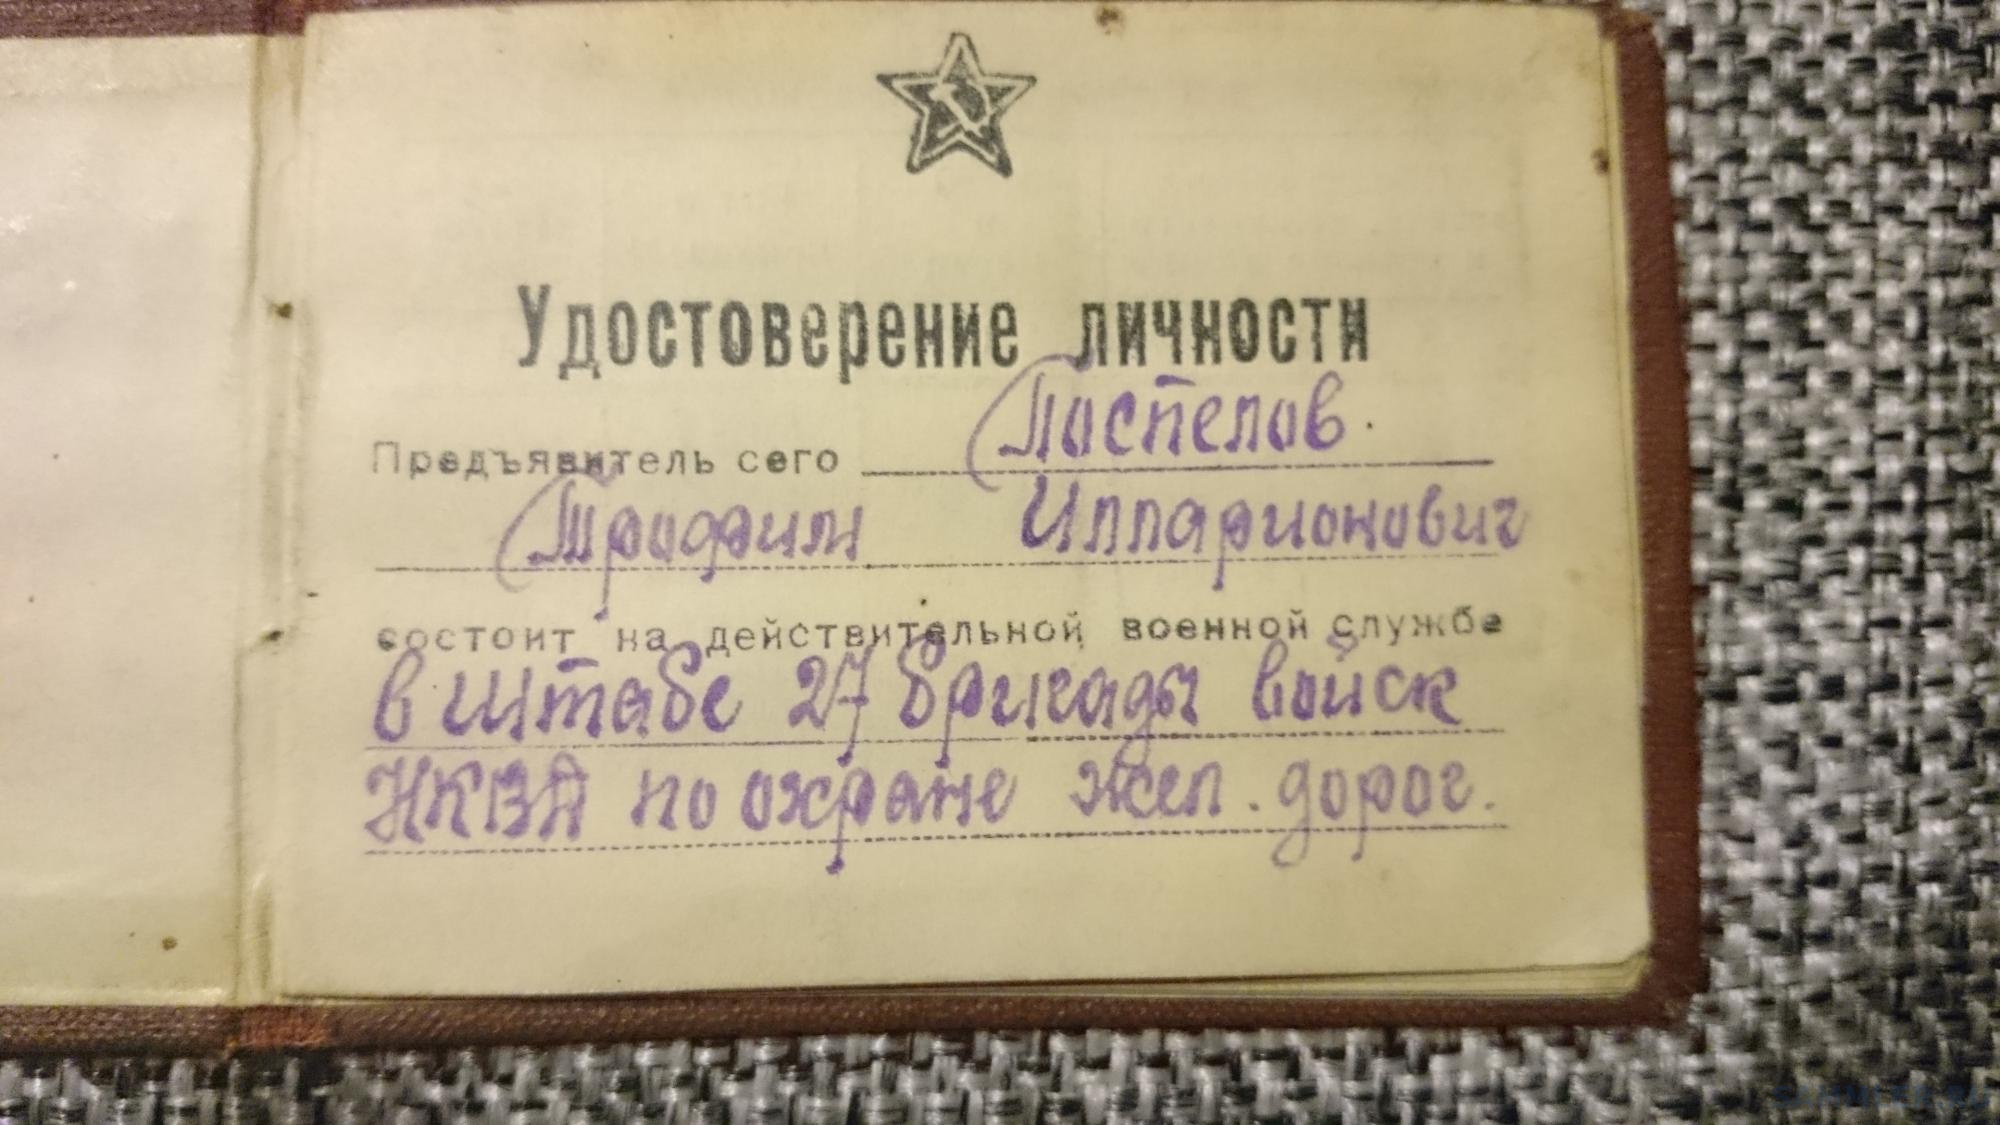 Удостоверение личности
Предъявитель сего Поспелов.
Трофим Илларионович
состоит на действительной военной службе
в штабе 27 бригады войск
НКВД по охране жел. дорог.